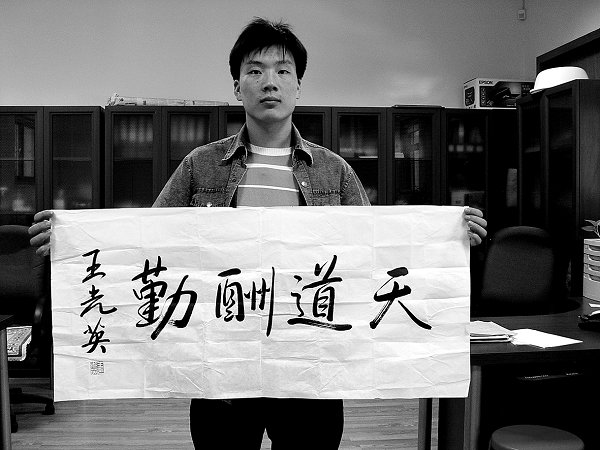 天道酬勤
王光英
EPSON